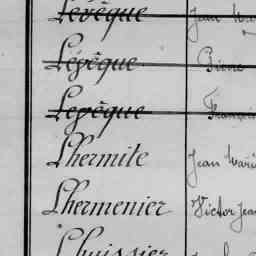 Lévêque Jean Mar
Lévêque Pierre
Levêque François
Lhermite Jean Marie
Lhermenier Victor Jean
Lhuissier